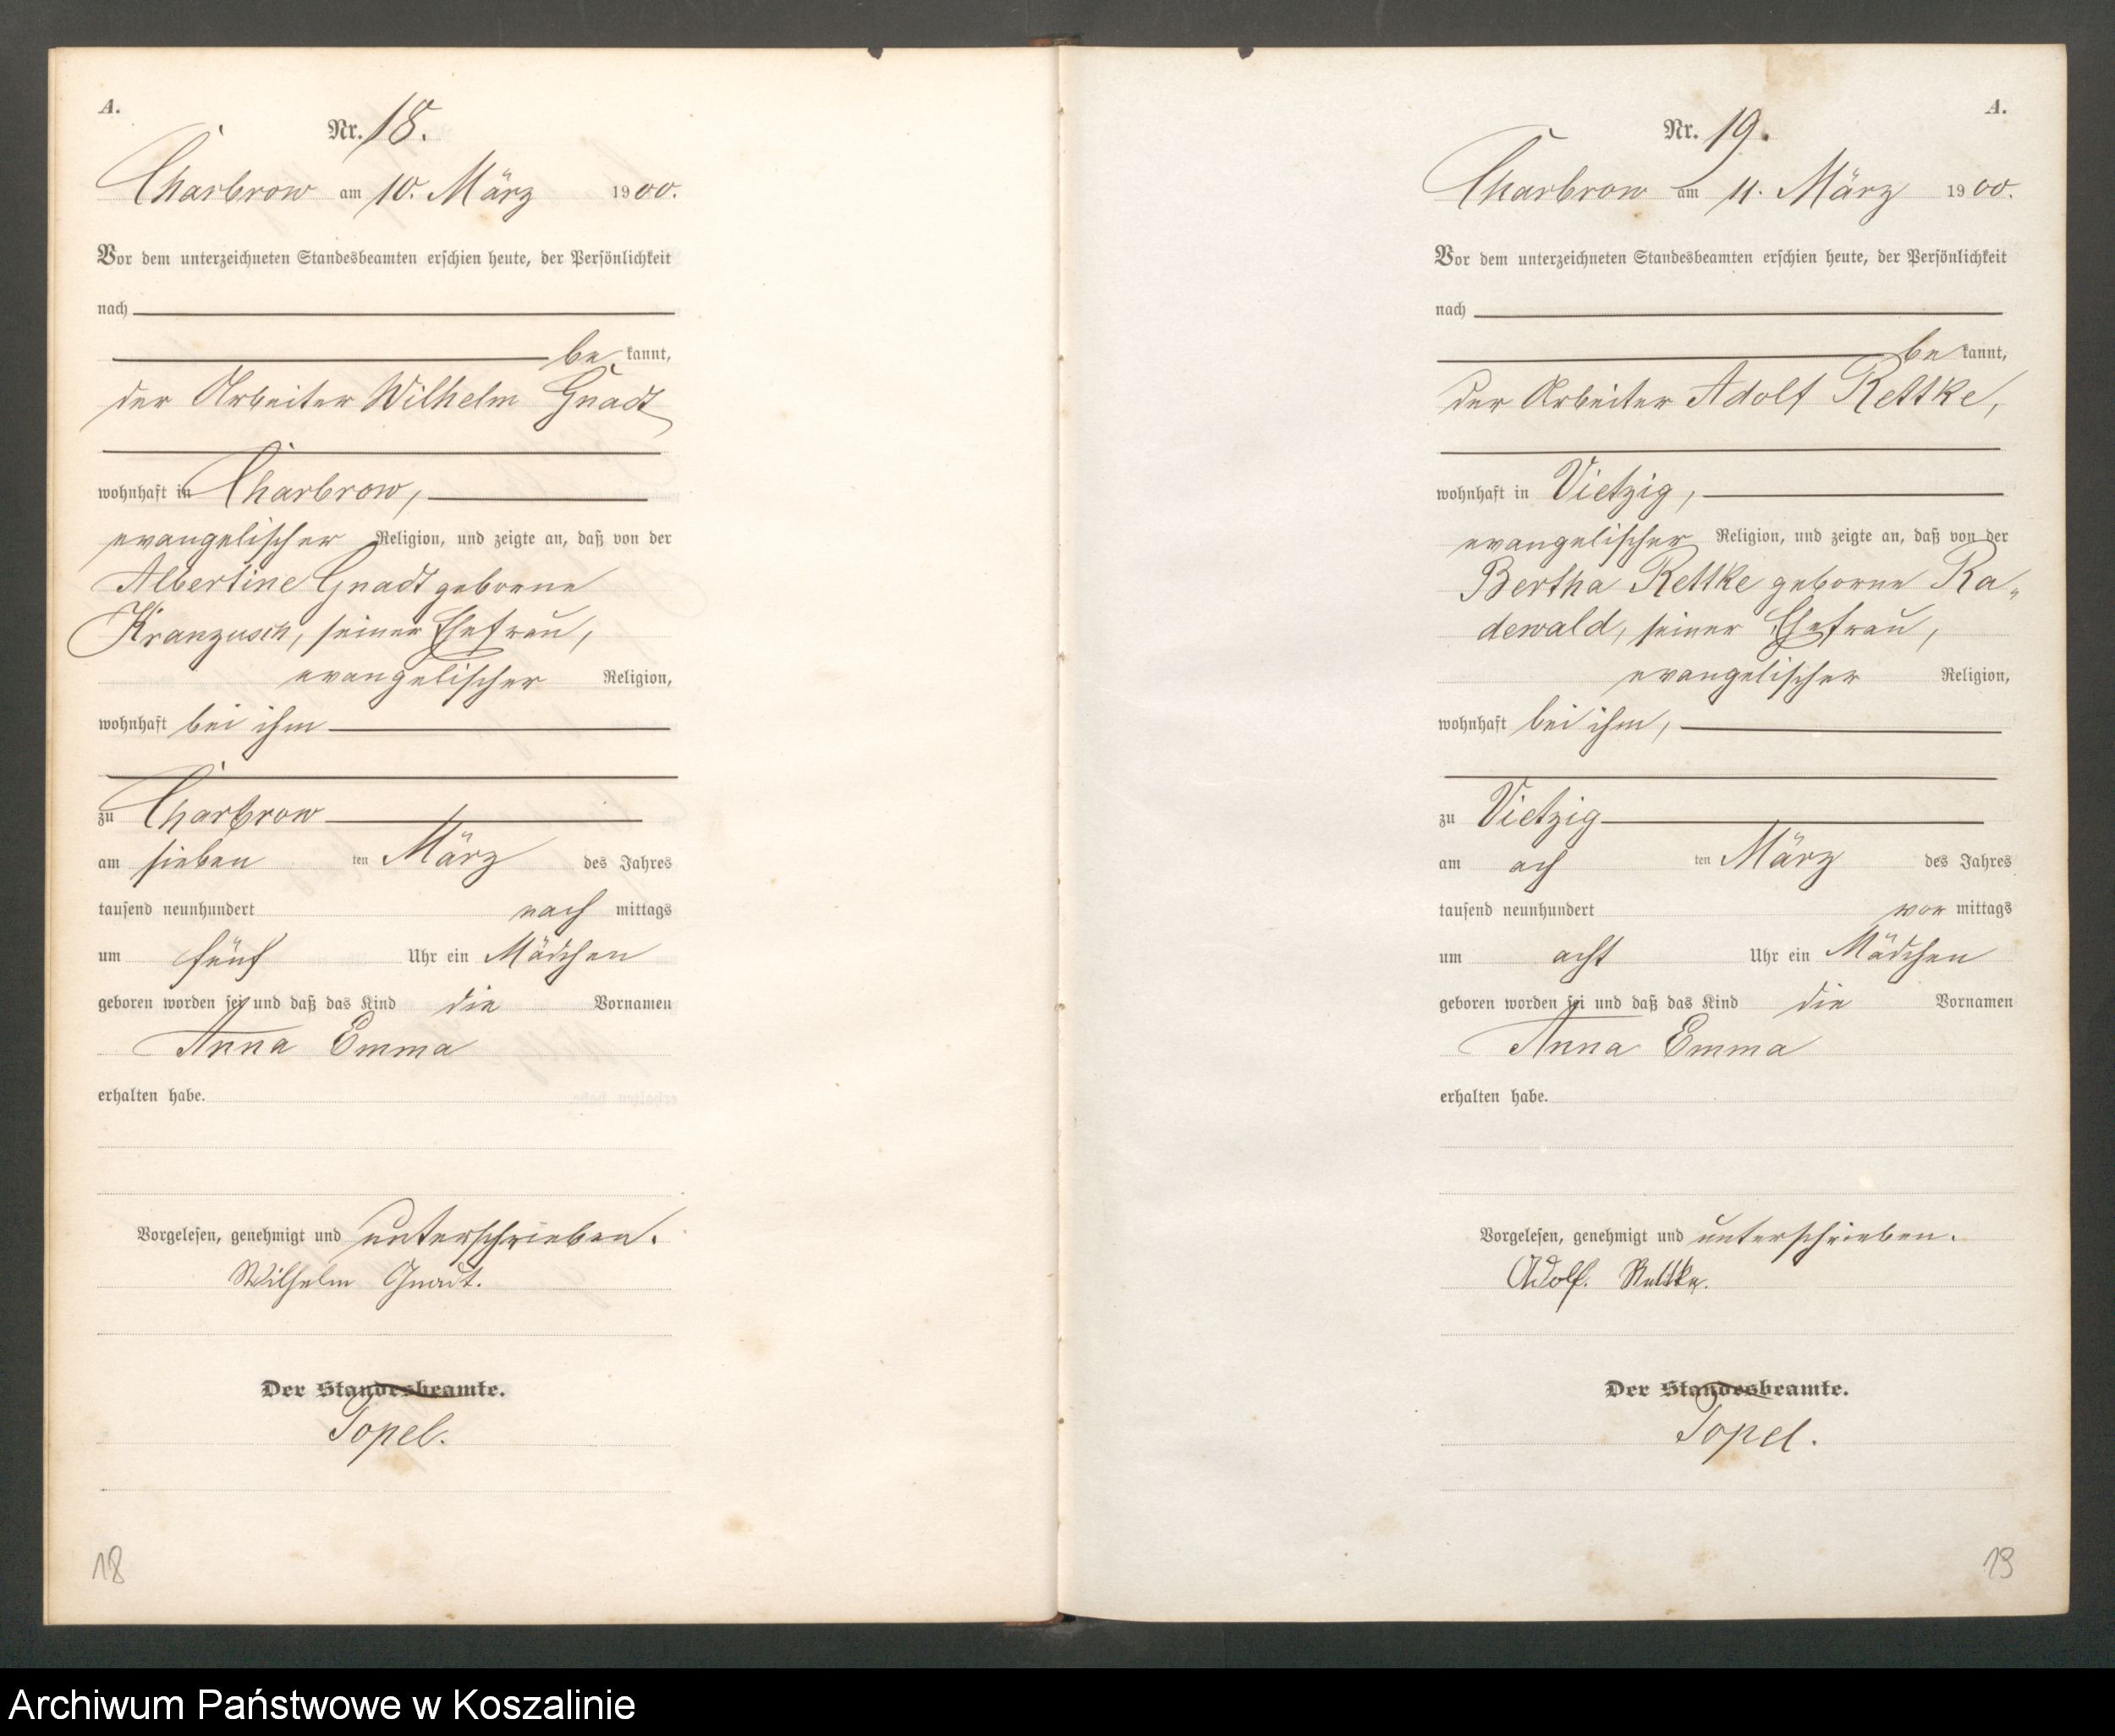 A.
Nr. 18.
Charbrow am 10. März 1900.
Vor dem unterzeichneten Standesbeamten erschien heute, der Persönlichkeit
nach
be kannt,
der Arbeiter Wilhelm Gnadt
wohnhaft in Charbrow,
evangelischer Religion, und zeigte an, daß von der
Albertine Gnadt geborene
Kranzusch, seiner Ehefrau,
evangelischer Religion,
wohnhaft bei ihm
zu Charbrow
am sieben ten März des Jahres
tausend neunhundert nach mittags
um fünf Uhr ein Mädchen
geboren worden sei und daß das Kind die Vornamen
Anna Emma
erhalten habe.
Vorgelesen, genehmigt und unterschrieben.
Wilhelm Gnadt.
Der Standesbeamte.
Topel.
18
A.
Nr. 19.
Charbrow am 11. März 1900.
Vor dem unterzeichneten Standesbeamten erschien heute, der Persönlichkeit
nach
be kannt,
der Arbeiter Adolf Rettke,
wohnhaft in Vietzig,
evangelischer Religion, und zeigte an, daß von der
Bertha Rettke geborne Ra-
dewald, seiner Ehefrau,
evangelischer Religion,
wohnhaft bei ihm,
zu Vietzig
am ach ten März des Jahres
tausend neunhundert vor mittags
um acht Uhr ein Mädchen
geboren worden sei und daß das Kind die Vornamen
Anna Emma
erhalten habe.
Vorgelesen, genehmigt und unterschrieben.
Adolf. Rettke.
Der Standesbeamte.
Topel.
19
Archiwum Państwowe w Koszalinie